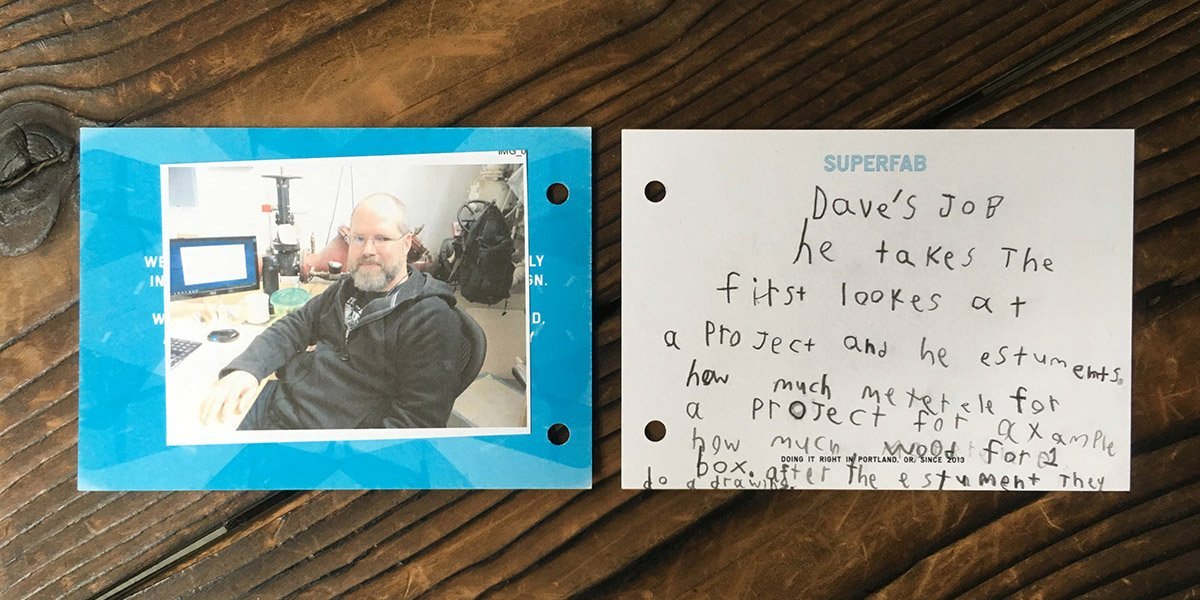 IMG_0
WE LY
IN GN.
W D,
SUPERFAB
Dave's JOB
he takes The
first lookes at
a ProJect and he estuments.
how much meterele for
a PrOJect for axample
how much wood for 1
DOING IT RIGHT IN PORTLAND, OR, SINCE 2013
box. after The estument They
do a drawing.